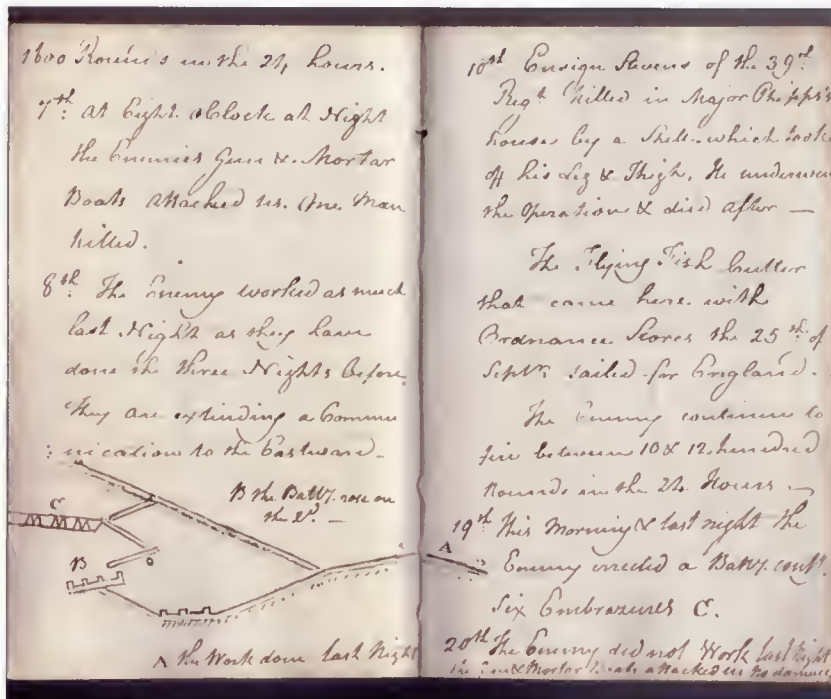 1600 Round's in the 24 hours.
7th: At Eight oClock at Night
the Enemies Gun & Mortar
Boats attacked us. One Man
killed.
8th: The Enemy worked as much
last Night as they have
done the three Nights before.
They are extending a Commu
:nication to the Eastward.
B the Batty. rose on
the 2d. —
C
B
A the Work done last Night
10th Ensign Stevens of the 39th
Regt. killed in Major Phipps's
houses by a Shell which took
off his Leg & Thigh. He underwen
the Operation & died after —
The Flying Fish Cutter
that came here with
Ordnance Stores the 25th: of
Septr. sailed for England.
The Enemy continue to
fire between 10 & 12 hundred
Rounds in the 24 Hours —
A
19th This Morning & last night the
Enemy erected a Batty. contg.
Six Embrazures C.
20th The Enemy did not Work last Night
the Gun & Mortar Boats attacked us no damage